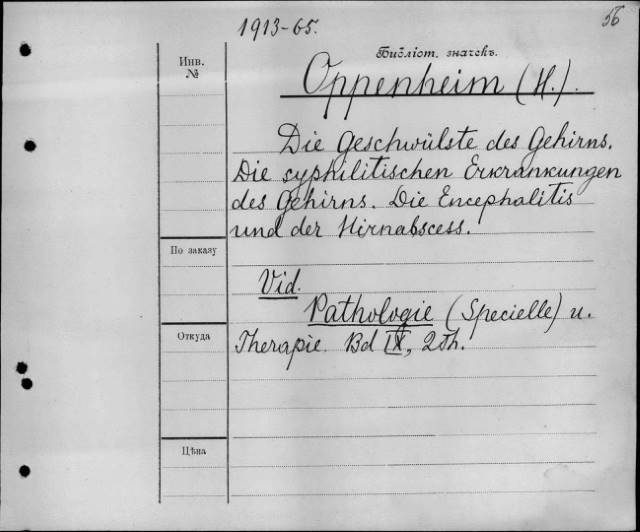 1913-65.
56
Инв. №
Библіот. значекъ.
Oppenheim (H.).
Die Geschwülste des Gehirns.
Die syphilitischen Erkrankungen
des Gehirns. Die Encephalitis
und der Hirnabscess.
По заказу
Vid.
Pathologie (Specielle) u.
Откуда
Therapie. Bd IX, 2Th.
Цѣна